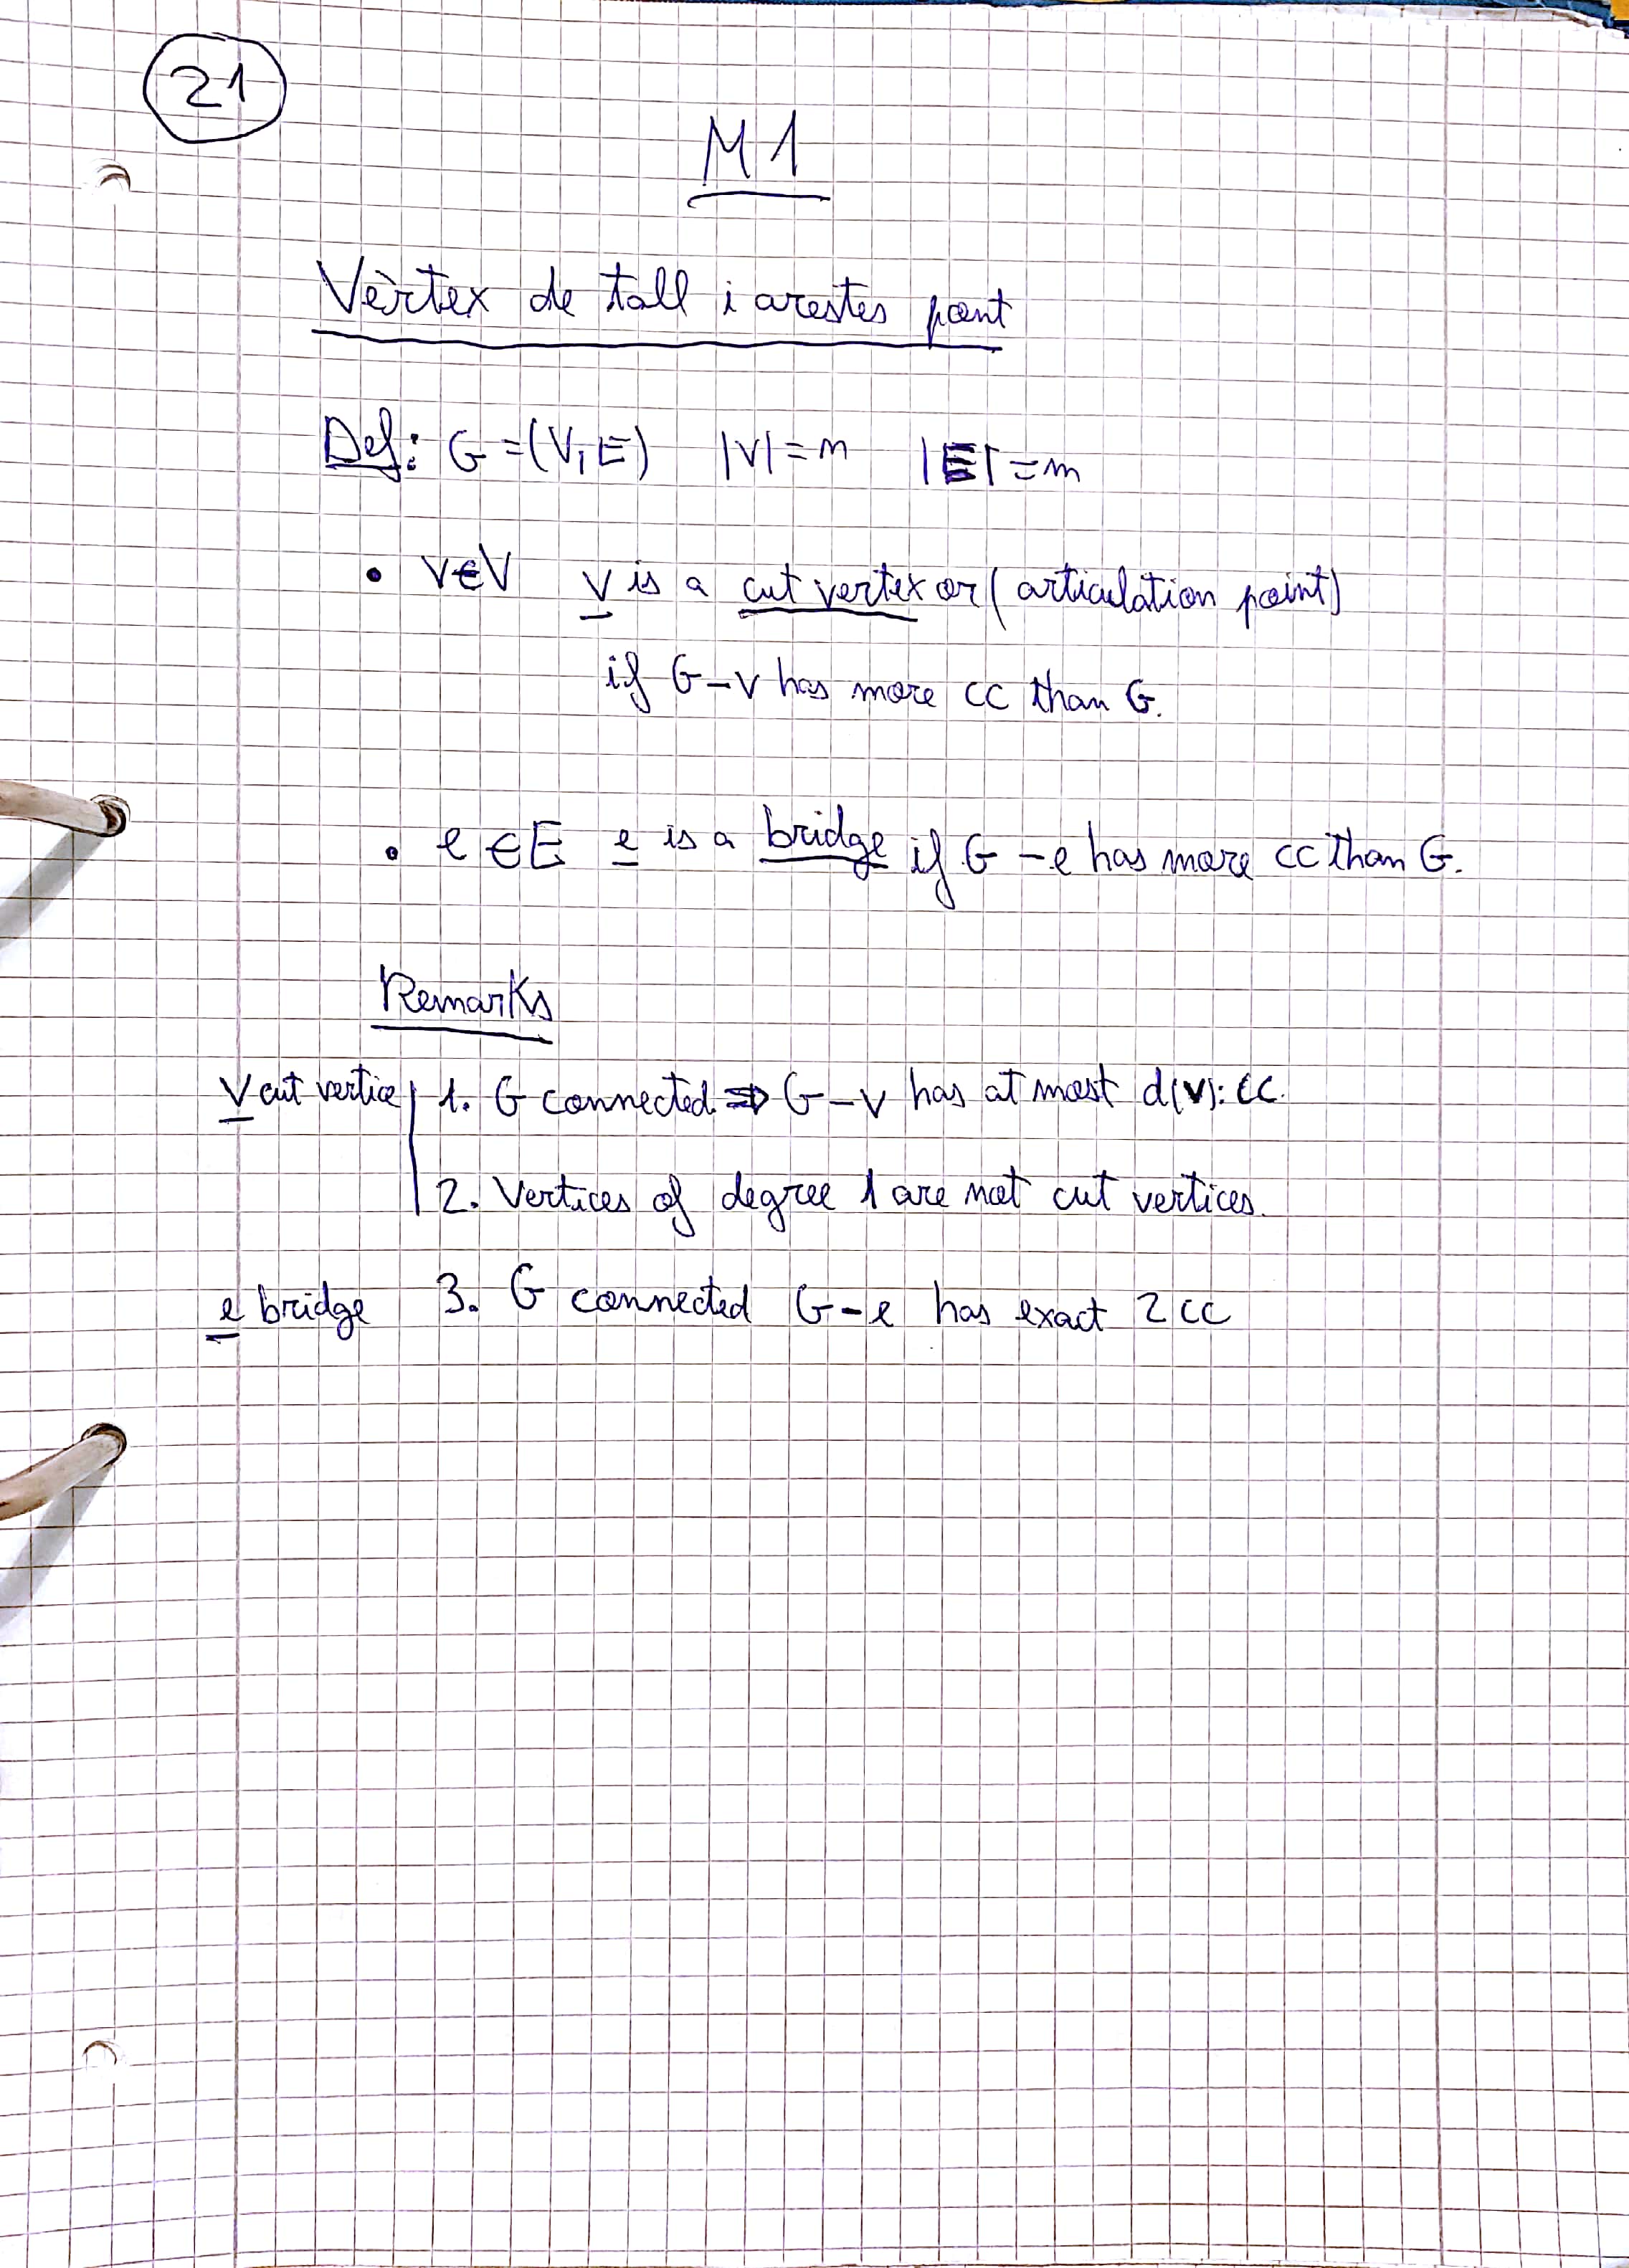 21
M1
Vèrtex de tall i arestes pont
Def: G=(V,E) |V|=n |E|=m
• v∈V v is a cut vertex or (articulation point)
if G-v has more cc than G.
• e∈E e is a bridge if G-e has more cc than G.
Remarks
v cut vertice 1. G connected ⇒ G-v has at most d(v): cc.
2. Vertices of degree 1 are not cut vertices.
e bridge 3. G connected G-e has exact 2 cc